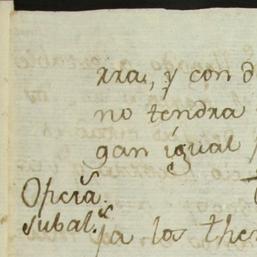 rra, y con d
no tendra
gan igual
Opera.s
subal.s
ja los the